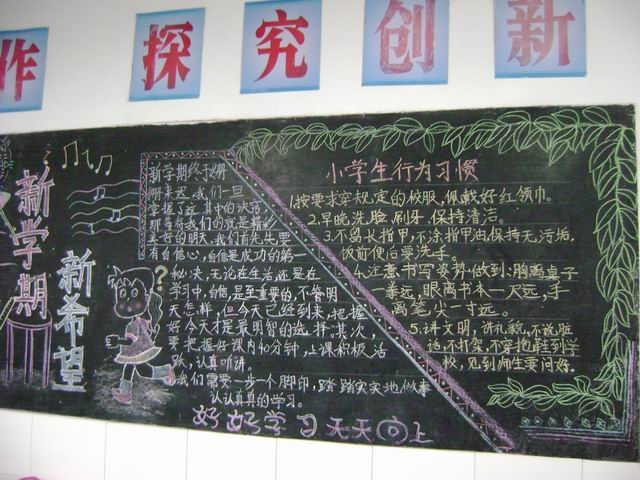 作 探 究 创 新
新学期
新希望
新学期终于姗
姗来迟,我们一旦
掌握了这其中的诀窍,
那等待我们的就是精彩
美好的明天,我们首先要
有自信心,自信是成功的第一
秘决,无论在生活还是在
学习中,自信是至重要的,不管明
天怎样,但今天已经到来,把握
好今天才是最明智的选择.其次,
要把握好课内40分钟,上课积极活
跃,认真听讲.
我们需要一步一个脚印,踏踏实实地做事
认认真真的学习.
好好学习天天向上
小学生行为习惯
1.按要求穿规定的校服,佩戴好红领巾。
2.早晚洗脸,刷牙.保持清洁。
3.不留长指甲,不涂指甲油,保持无污垢.
做前便后要洗手。
4.注意书写姿势做到:胸离桌子
一拳远,眼离书本一尺远,手
离笔尖一寸远。
5.讲文明,讲礼貌,不说脏
话,不打架,不穿拖鞋到学
校,见到师生要问好.